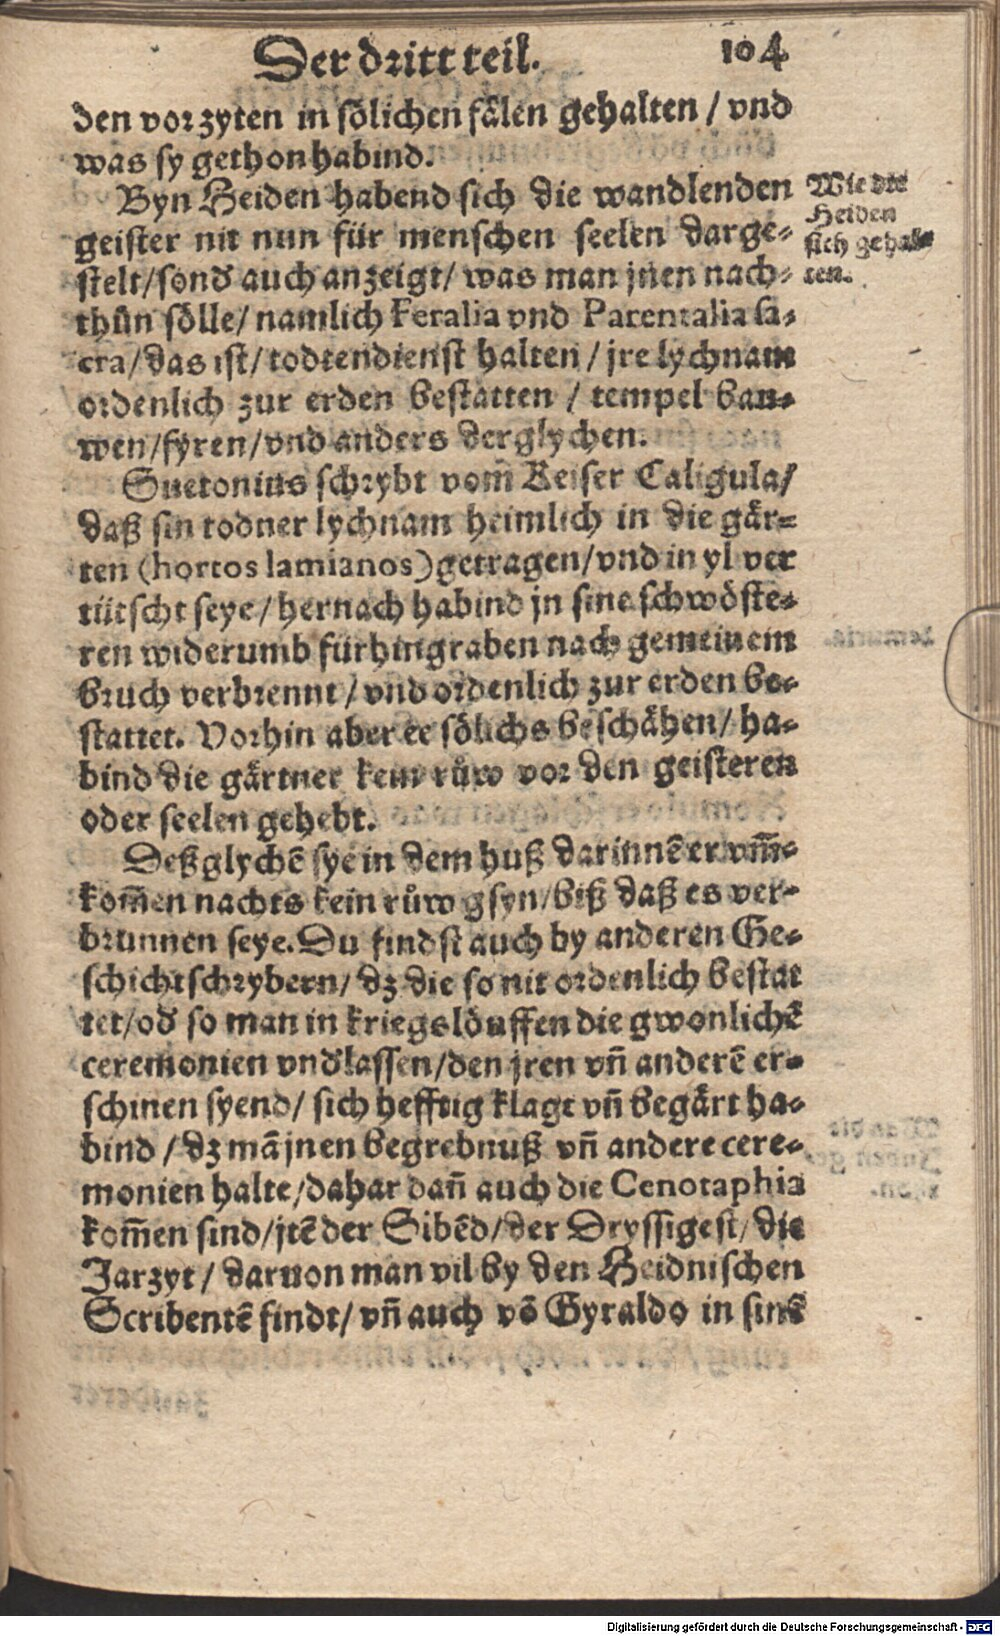 Der dritt teil. 104
den vor zyten in sölichen fälen gehalten / vnd
was sy gethon habind.
Byn Heiden habend sich die wandlenden
geister nit nun für menschen seelen darge-
stelt/sonď auch anzeigt/ was man jnen nach-
thůn sölle/ namlich Feralia vnd Parentalia sa-
cra/das ist/ todtendienst halten / jre lychnam
ordenlich zur erden bestatten / tempel bau-
wen/fyren/vnd anders derglychen.
Wie die
Heiden
sich gehal-
ten.
Suetonius schrybt vom̃ Keiser Caligula/
daß sin todner lychnam heimlich in die gär-
ten (hortos lamianos) getragen/vnd in yl ver
tütscht seye/ hernach habind jn sine schwöste-
ren widerumb fürhingraben nach gemeinem
bruch verbrennt / vnd ordenlich zur erden be-
stattet. Vorhin aber ee sölichs beschähen/ ha-
bind die gärtner kein růw vor den geisteren
oder seelen gehebt.
Deßglychẽ sye in dem huß darinnẽ er vm̃-
kom̃en nachts kein růw gsyn/biß daß es ver-
brunnen seye. Du findst auch by anderen Ge-
schichtschrybern/ dz die so nit ordenlich bestat
tet/oď so man in kriegslöuffen die gwonlichẽ
ceremonien vnďlassen/den jren vñ anderẽ er-
schinen syend/ sich hefftig klagt vñ begärt ha-
bind / dz mã jnen begrebnuß vñ andere cere-
monien halte/dahar dañ auch die Cenotaphia
kom̃en sind/jtẽ der Sibẽd/der Dryssigest/ die
Jarzyt / daruon man vil by den Heidnischen
Scribentẽ findt/ vñ auch võ Gyraldo in sinẽ
Digitalisierung gefördert durch die Deutsche Forschungsgemeinschaft - DFG